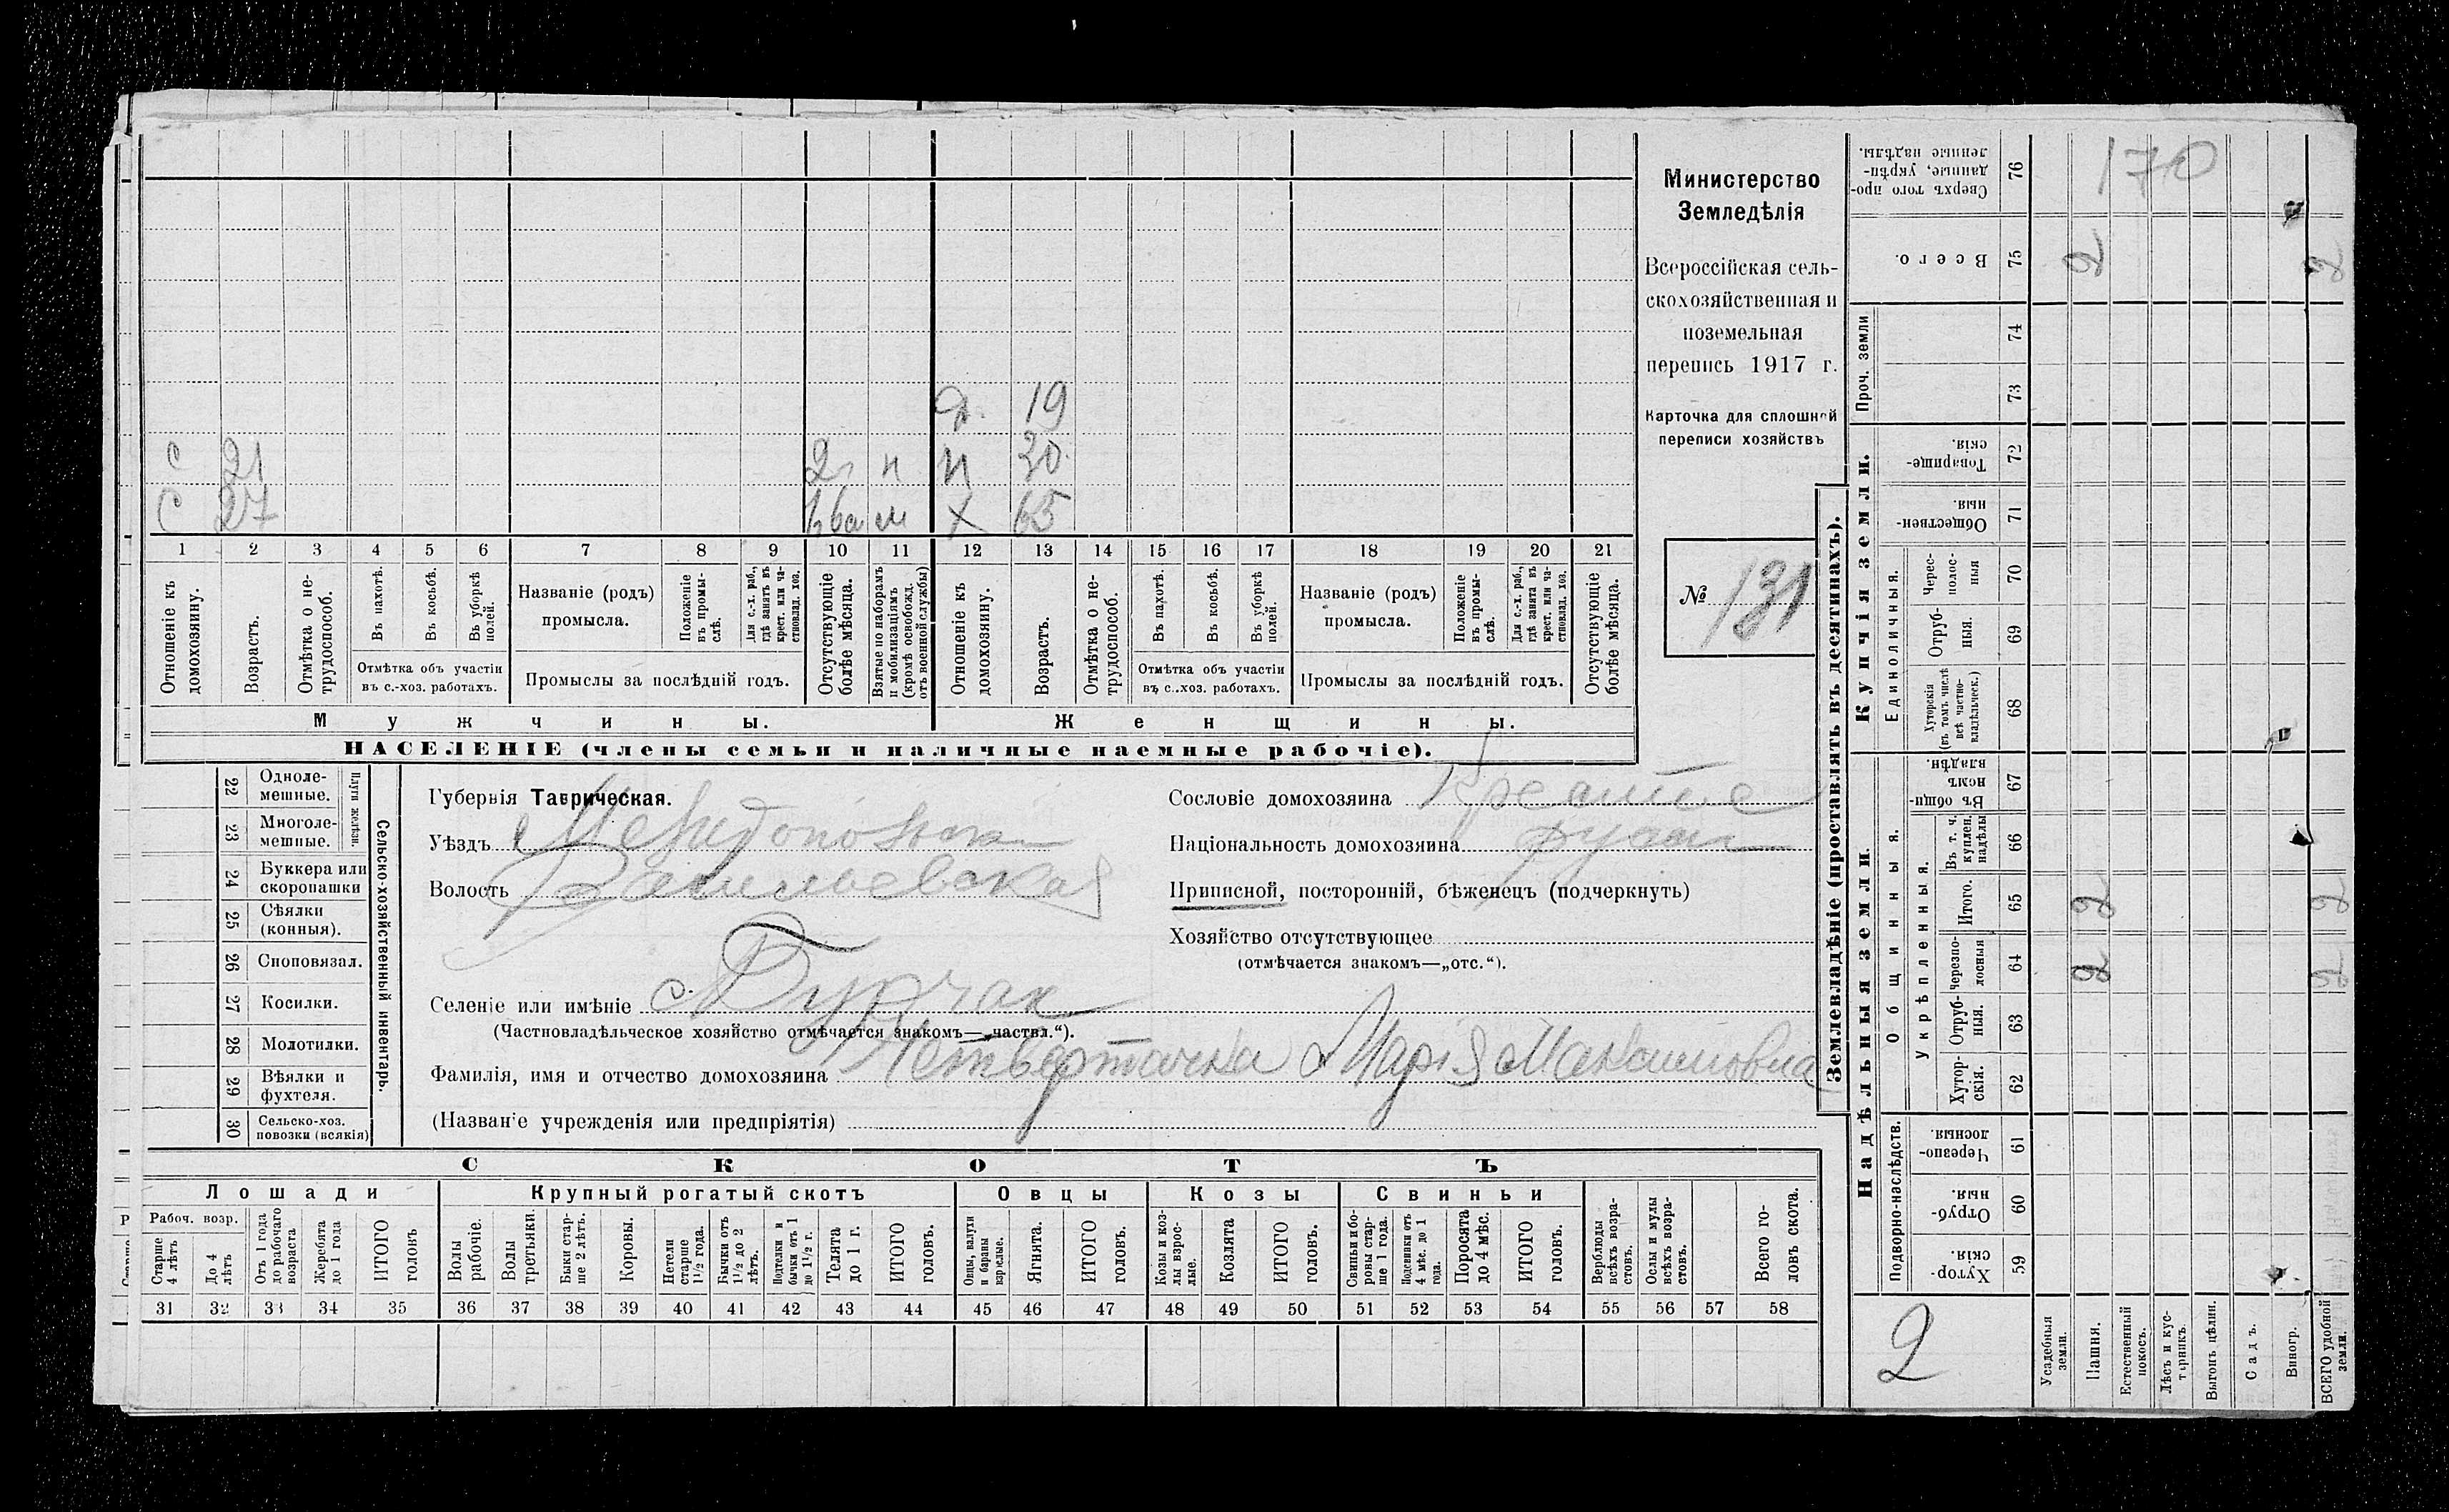 д. 19
с 21 2 г н н 30
с 27 м х 65
1 2 3 4 5 6 7 8 9 10 11 12 13 14 15 16 17 18 19 20 21
Отношеніе къ домохозяину.
Возрастъ.
Отмѣтка о нетрудоспособ.
Въ пахотѣ.
Въ косьбѣ.
Въ уборкѣ полей.
Отмѣтка объ участіи въ с.-хоз. работахъ.
Названіе (родъ) промысла.
Положеніе въ промыслѣ.
Для с.-х. раб., гдѣ занятъ въ крест. или частновлад. хоз.
Промыслы за послѣдній годъ.
Отсутствующіе болѣе мѣсяца.
Взятые по наборамъ и мобилизаціямъ (кромѣ освобожд. отъ военной службы)
Отношеніе къ домохозяину.
Возрастъ.
Отмѣтка о нетрудоспособ.
Въ пахотѣ.
Въ косьбѣ.
Въ уборкѣ полей.
Отмѣтка объ участіи въ с..хоз. работахъ.
Названіе (родъ) промысла.
Положеніе въ промыслѣ.
Для с.-х. раб., гдѣ занята въ крест. или частновлад. хоз.
Промыслы за послѣдній годъ.
Отсутствующіе болѣе мѣсяца.
Мужчины. Женщины.
НАСЕЛЕНІЕ (члены семьи и наличные наемные рабочіе).
Министерство
Земледѣлія
Всероссійская сель-
скохозяйственная и
поземельная
перепись 1917 г.
Карточка для сплошной
переписи хозяйствъ
№ 131
Сельско-хозяйственный инвентарь.
Плуги желѣзн.
22 Одноле-
мешные.
23 Многоле-
мешные.
24 Буккера или
скоропашки
25 Сѣялки
(конныя).
26 Сноповязал.
27 Косилки.
28 Молотилки.
29 Вѣялки и
фухтеля.
30 Сельско-хоз.
повозки (всякія)
Губернія Таврическая.
Уѣздъ Мелитопольск
Волость Васильевская
Селеніе или имѣніе с. Бурчак
(Частновладѣльческое хозяйство отмѣчается знакомъ—„частвл.“).
Фамилія, имя и отчество домохозяина Четверточка Марія Максимовна
(Названіе учрежденія или предпріятія)
Сословіе домохозяина
Національность домохозяина русск
Приписной, посторонній, бѣженецъ (подчеркнуть)
Хозяйство отсутствующее
(отмѣчается знакомъ—„отс.“).
СКОТЪ
Лошади Крупный рогатый скотъ Овцы Козы Свиньи
Рабоч. возр.
Старше 4 лѣтъ
До 4 лѣтъ
Отъ 1 года до рабочаго возраста
Жеребята до 1 года
ИТОГО головъ
Волы рабочіе.
Волы третьяки.
Быки старше 2 лѣтъ.
Коровы.
Нетели старше 1½ года.
Бычки отъ 1½ до 2 лѣтъ.
Подтелки и бычки отъ 1 до 1½ г.
Телята до 1 г.
ИТОГО головъ.
Овцы, валухи и бараны взрослые.
Ягнята.
ИТОГО головъ.
Козы и козлы взрослые.
Козлята
ИТОГО головъ.
Свиньи боровы старше 1 года.
Подсвинки отъ 4 мѣс. до 1 года.
Поросята до 4 мѣс.
ИТОГО головъ.
Верблюды всѣхъ возрастовъ.
Ослы и мулы всѣхъ возрастовъ.
Всего головъ скота.
31 32 33 34 35 36 37 38 39 40 41 42 43 44 45 46 47 48 49 50 51 52 53 54 55 56 57 58
Землевладѣніе (проставлять въ десятинахъ).
Купчія земли.
Надѣльныя земли.
170
Сверхъ того проданные, укрѣпленные надѣлы. 76
Всего. 75 2 2
Проч. земли 74
73
Товарищескія. 72
Общественныя. 71
Единоличныя.
Чересполосныя 70
Отрубныя. 69
Хуторскія (въ томъ числѣ всѣ частновладѣльческ.) 68
Общинныя.
Въ общинномъ владѣн. 67
Укрѣпленныя.
Въ т. ч. куплен. надѣлы 66
Итого. 65 2 2
Черезполосныя 64 2 2
Отрубныя. 63
Хуторскія. 62
Подворно-наслѣдств.
Черезполосныя. 61
Отрубныя. 60
Хуторскія. 59
2
Усадебныя земли.
Пашня.
Естественный покосъ.
Лѣсъ и кустарникъ.
Выгонъ цѣлин.
Садъ.
Виногр.
ВСЕГО удобной земли.